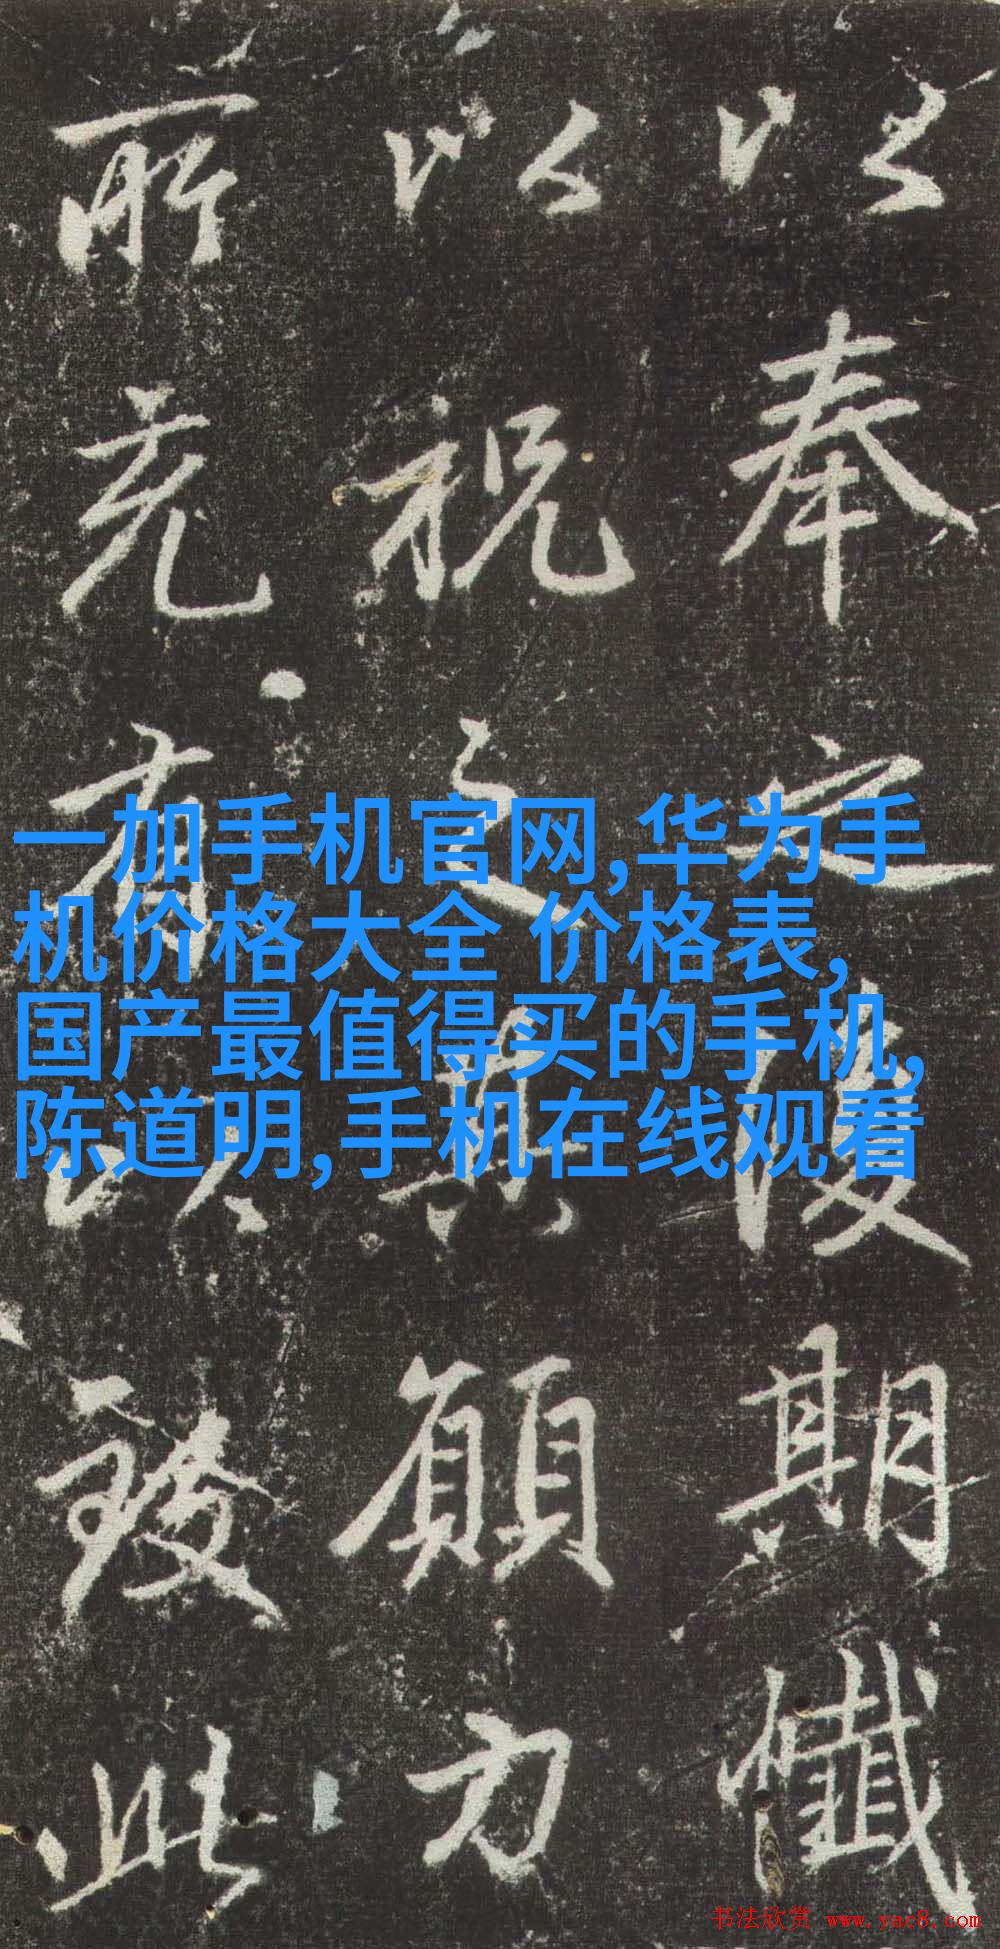 一加手机官网,华为手
机价格大全 价格表,
国产最值得买的手机,
陈道明,手机在线观看
以奉之後期懺
以祝之其願力
所有以致此
书法欣赏 www.yac8.com